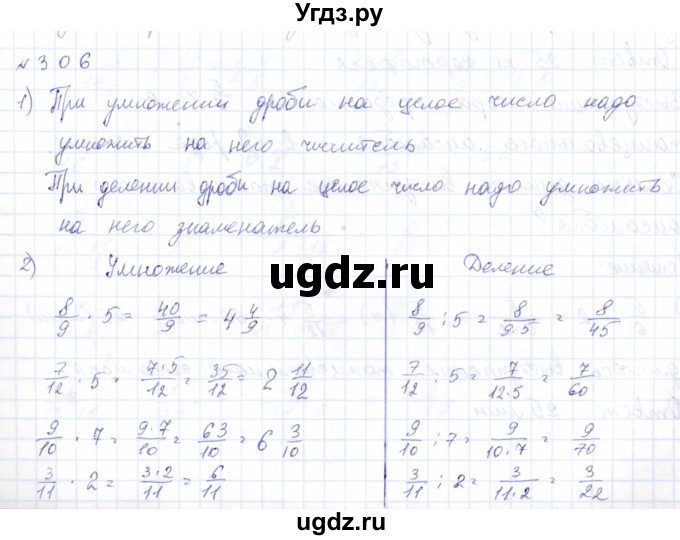 Угдз.ру
№306
1) При умножении дроби на целое число надо
умножить на него числитель
При делении дроби на целое число надо умножить
на него знаменатель
2) Умножение
8/9 · 5 = 40/9 = 4 4/9
7/12 · 5 = 7·5/12 = 35/12 = 2 11/12
9/10 · 7 = 9·7/10 = 63/10 = 6 3/10
3/11 · 2 = 3·2/11 = 6/11
Деление
8/9 : 5 = 8/9·5 = 8/45
7/12 : 5 = 7/12·5 = 7/60
9/10 : 7 = 9/10·7 = 9/70
3/11 : 2 = 3/11·2 = 3/22
Угдз.ру
ugdz.ru
ugdz.ru
ugdz.ru